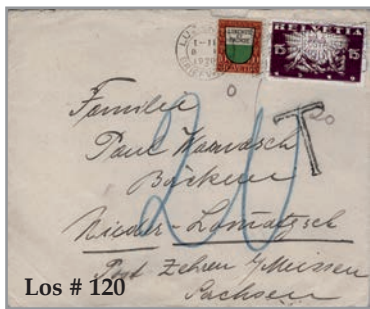 HELVETIA
15 15
1920
T 20
0
Familie
Paul
Bäckerei
20
Nieder-Lomatzsch
Post Zehren b/Meissen
Sachsen
Los # 120